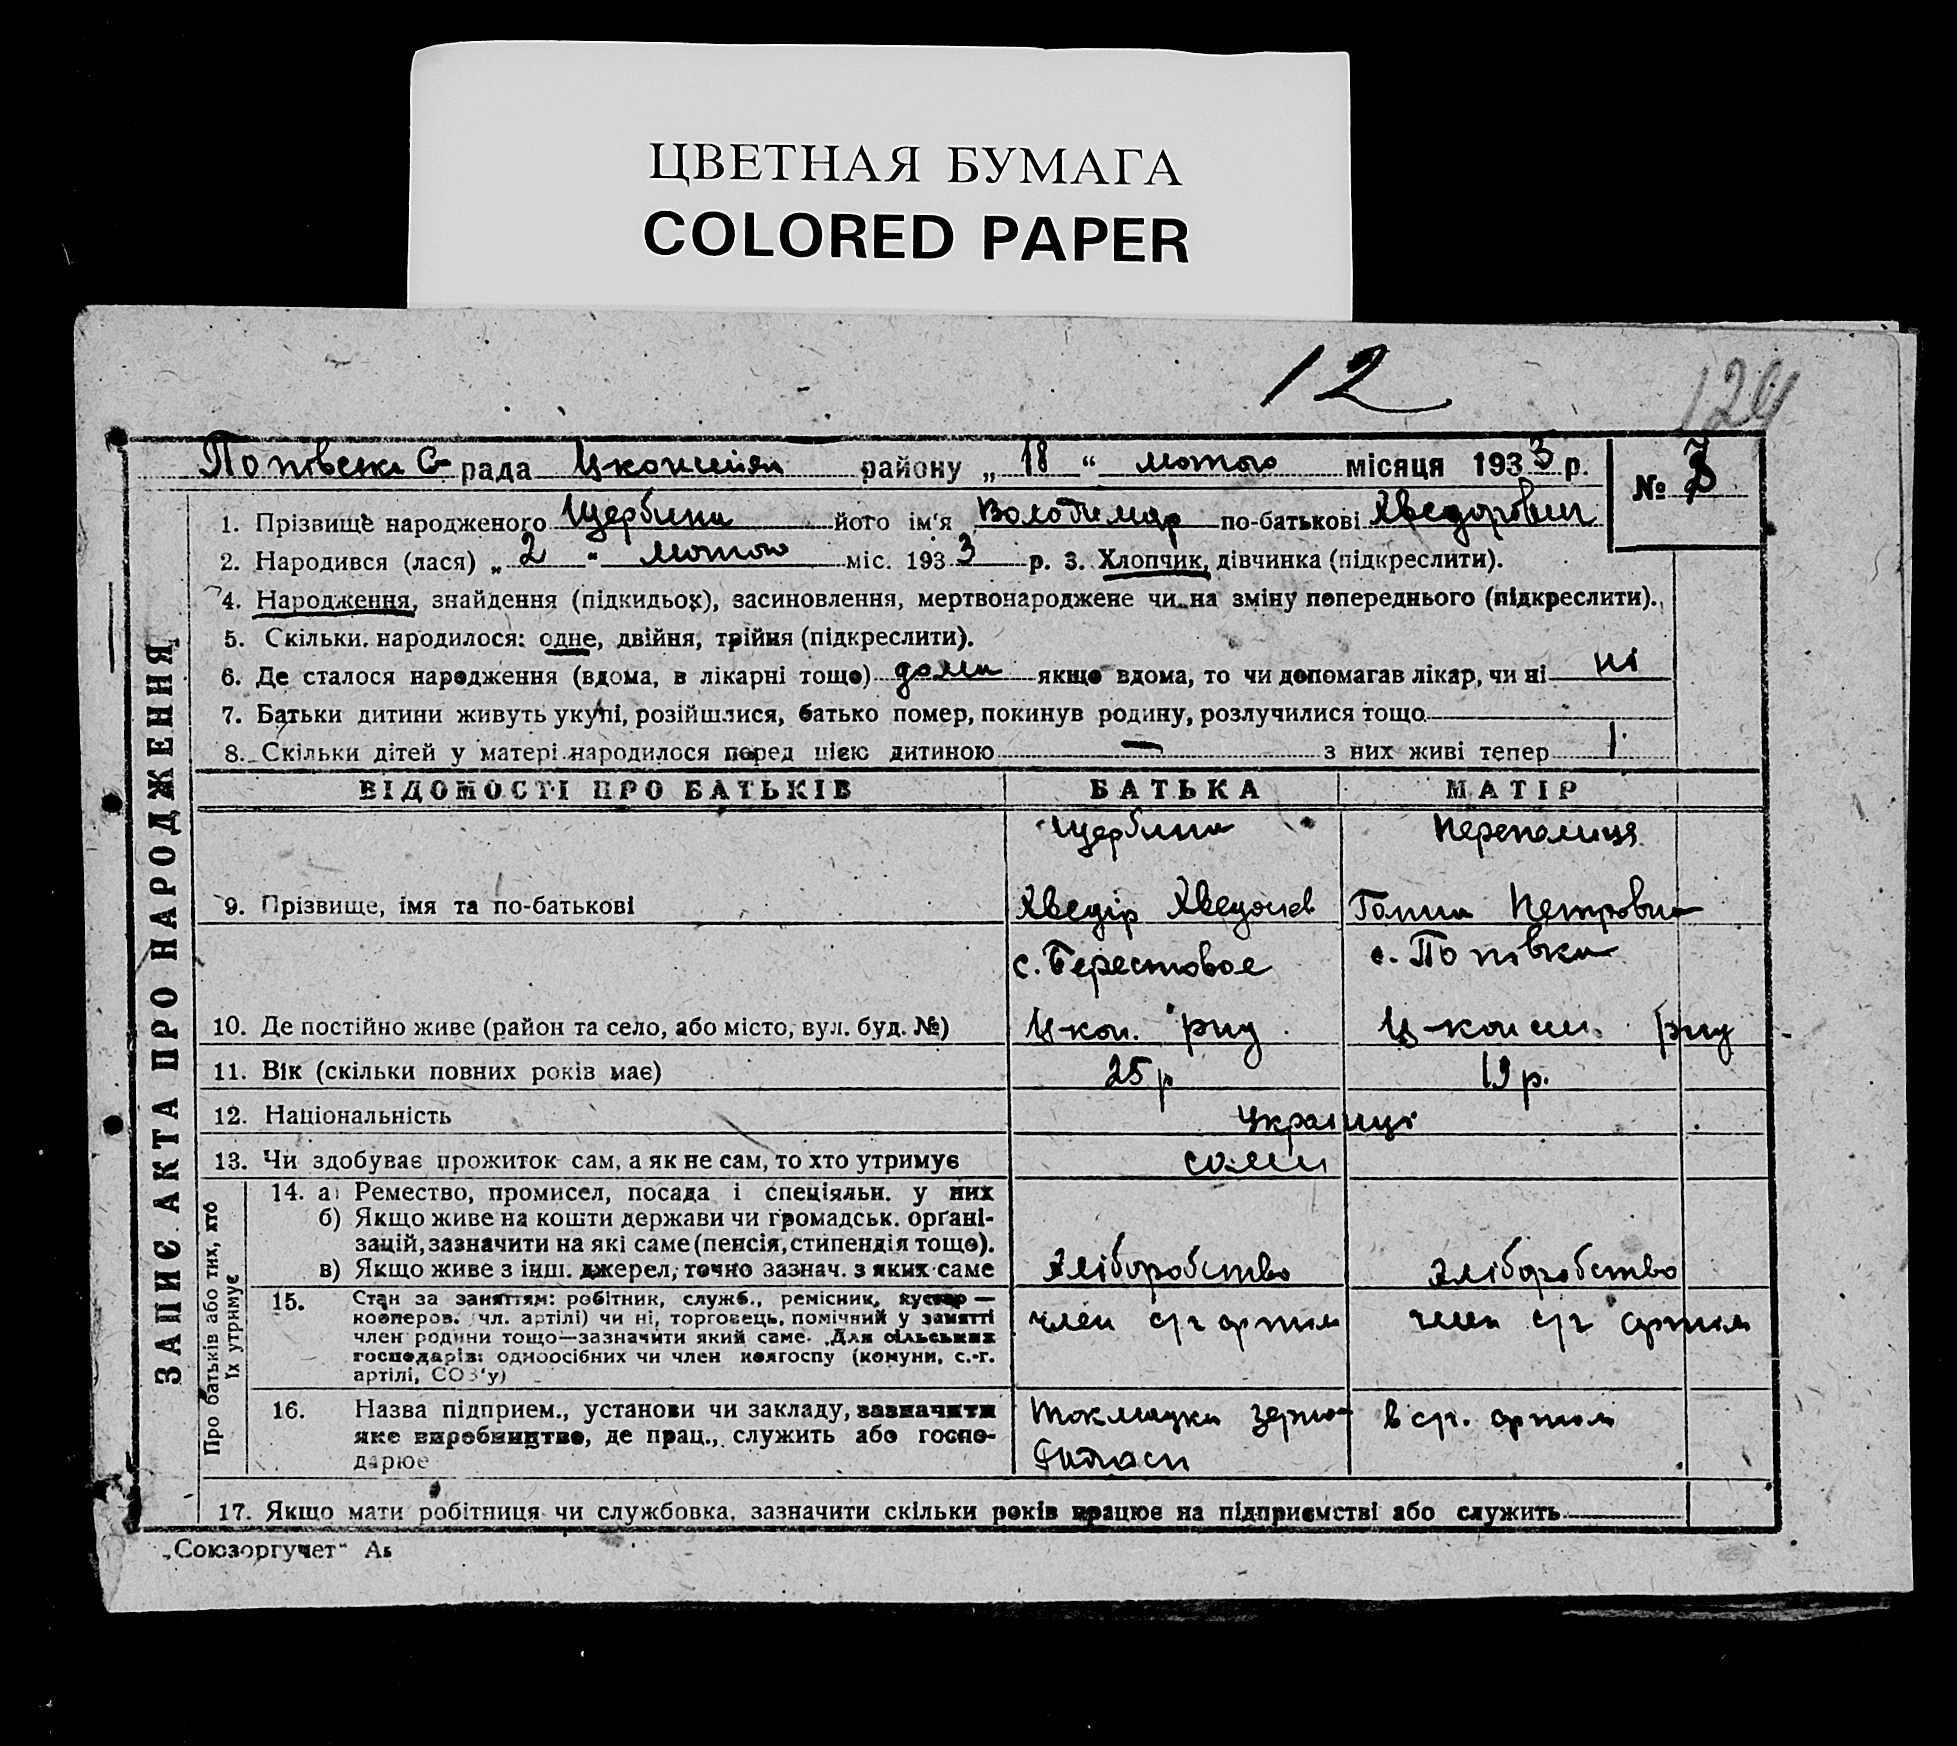 ЦВЕТНАЯ БУМАГА
COLORED PAPER
12
Попівська С рада района „ 18 “ лютого місяця 1933 р.
№
1. Прізвище народженого Щербина його ім'я Володимар по-батькові Хведорович
2. Народився (лася) „ 2 “ лютого міс. 1933 р. 3. Хлопчик, дівчинка (підкреслити).
4. Народження, знайдення (підкидьок), засиновлення, мертвонароджене чи на зміну попереднього (підкреслити).
5. Скільки народилося: одне, двійня, трійня (підкреслити).
6. Де сталося народження (вдома, в лікарні тощо) дома якщо вдома, то чи допомагав лікар, чи ні ні
7. Батьки дитини живуть укупі, розійшлися, батько помер, покинув родину, розлучилися тощо
8. Скільки дітей у матері народилося перед цією дитиною — з них живі тепер 1
ЗАПИС АКТА ПРО НАРОДЖЕННЯ
ВІДОМОСТІ ПРО БАТЬКІВ БАТЬКА МАТІР
Щербина Перепелиця
9. Прізвище, імя та по-батькові Хведір Ганна Петровна
с. Берестовое с. Попівка
10. Де постійно живе (район та село, або місто, вул. буд. №)
11. Вік (скільки повних років має) 25 р 19 р.
12. Національність Українці
13. Чи здобуває прожиток сам, а як не сам, то хто утримує сами
Про батьків або тих, хто їх утримує
14. а) Ремество, промисел, посада і спеціяльн. у них
б) Якщо живе на кошти держави чи громадськ. орґані-
зацій, зазначити на які саме (пенсія, стипендія тощо).
в) Якщо живе з інш. джерел, точно зазнач. з яких саме хліборобство хліборобство
15. Стан за заняттям: робітник, служб., ремісник, кустар —
кооперов. (чл. артілі) чи ні, торговець, помічний у занятті
член родини тощо—зазначити який саме. Для сільських
господарів: одноосібних чи член колгоспу (комуни, с.-г.
артілі, СОЗ'у)
член с/г артіли член с/г артіли
16. Назва підприєм., установи чи закладу, зазначити
яке виробництво, де прац., служить або госпо-
дарює
в с/г. артіли
17. Якщо мати робітниця чи службовка, зазначити скільки років працює на підприємстві або служить
„Союзоргучет“